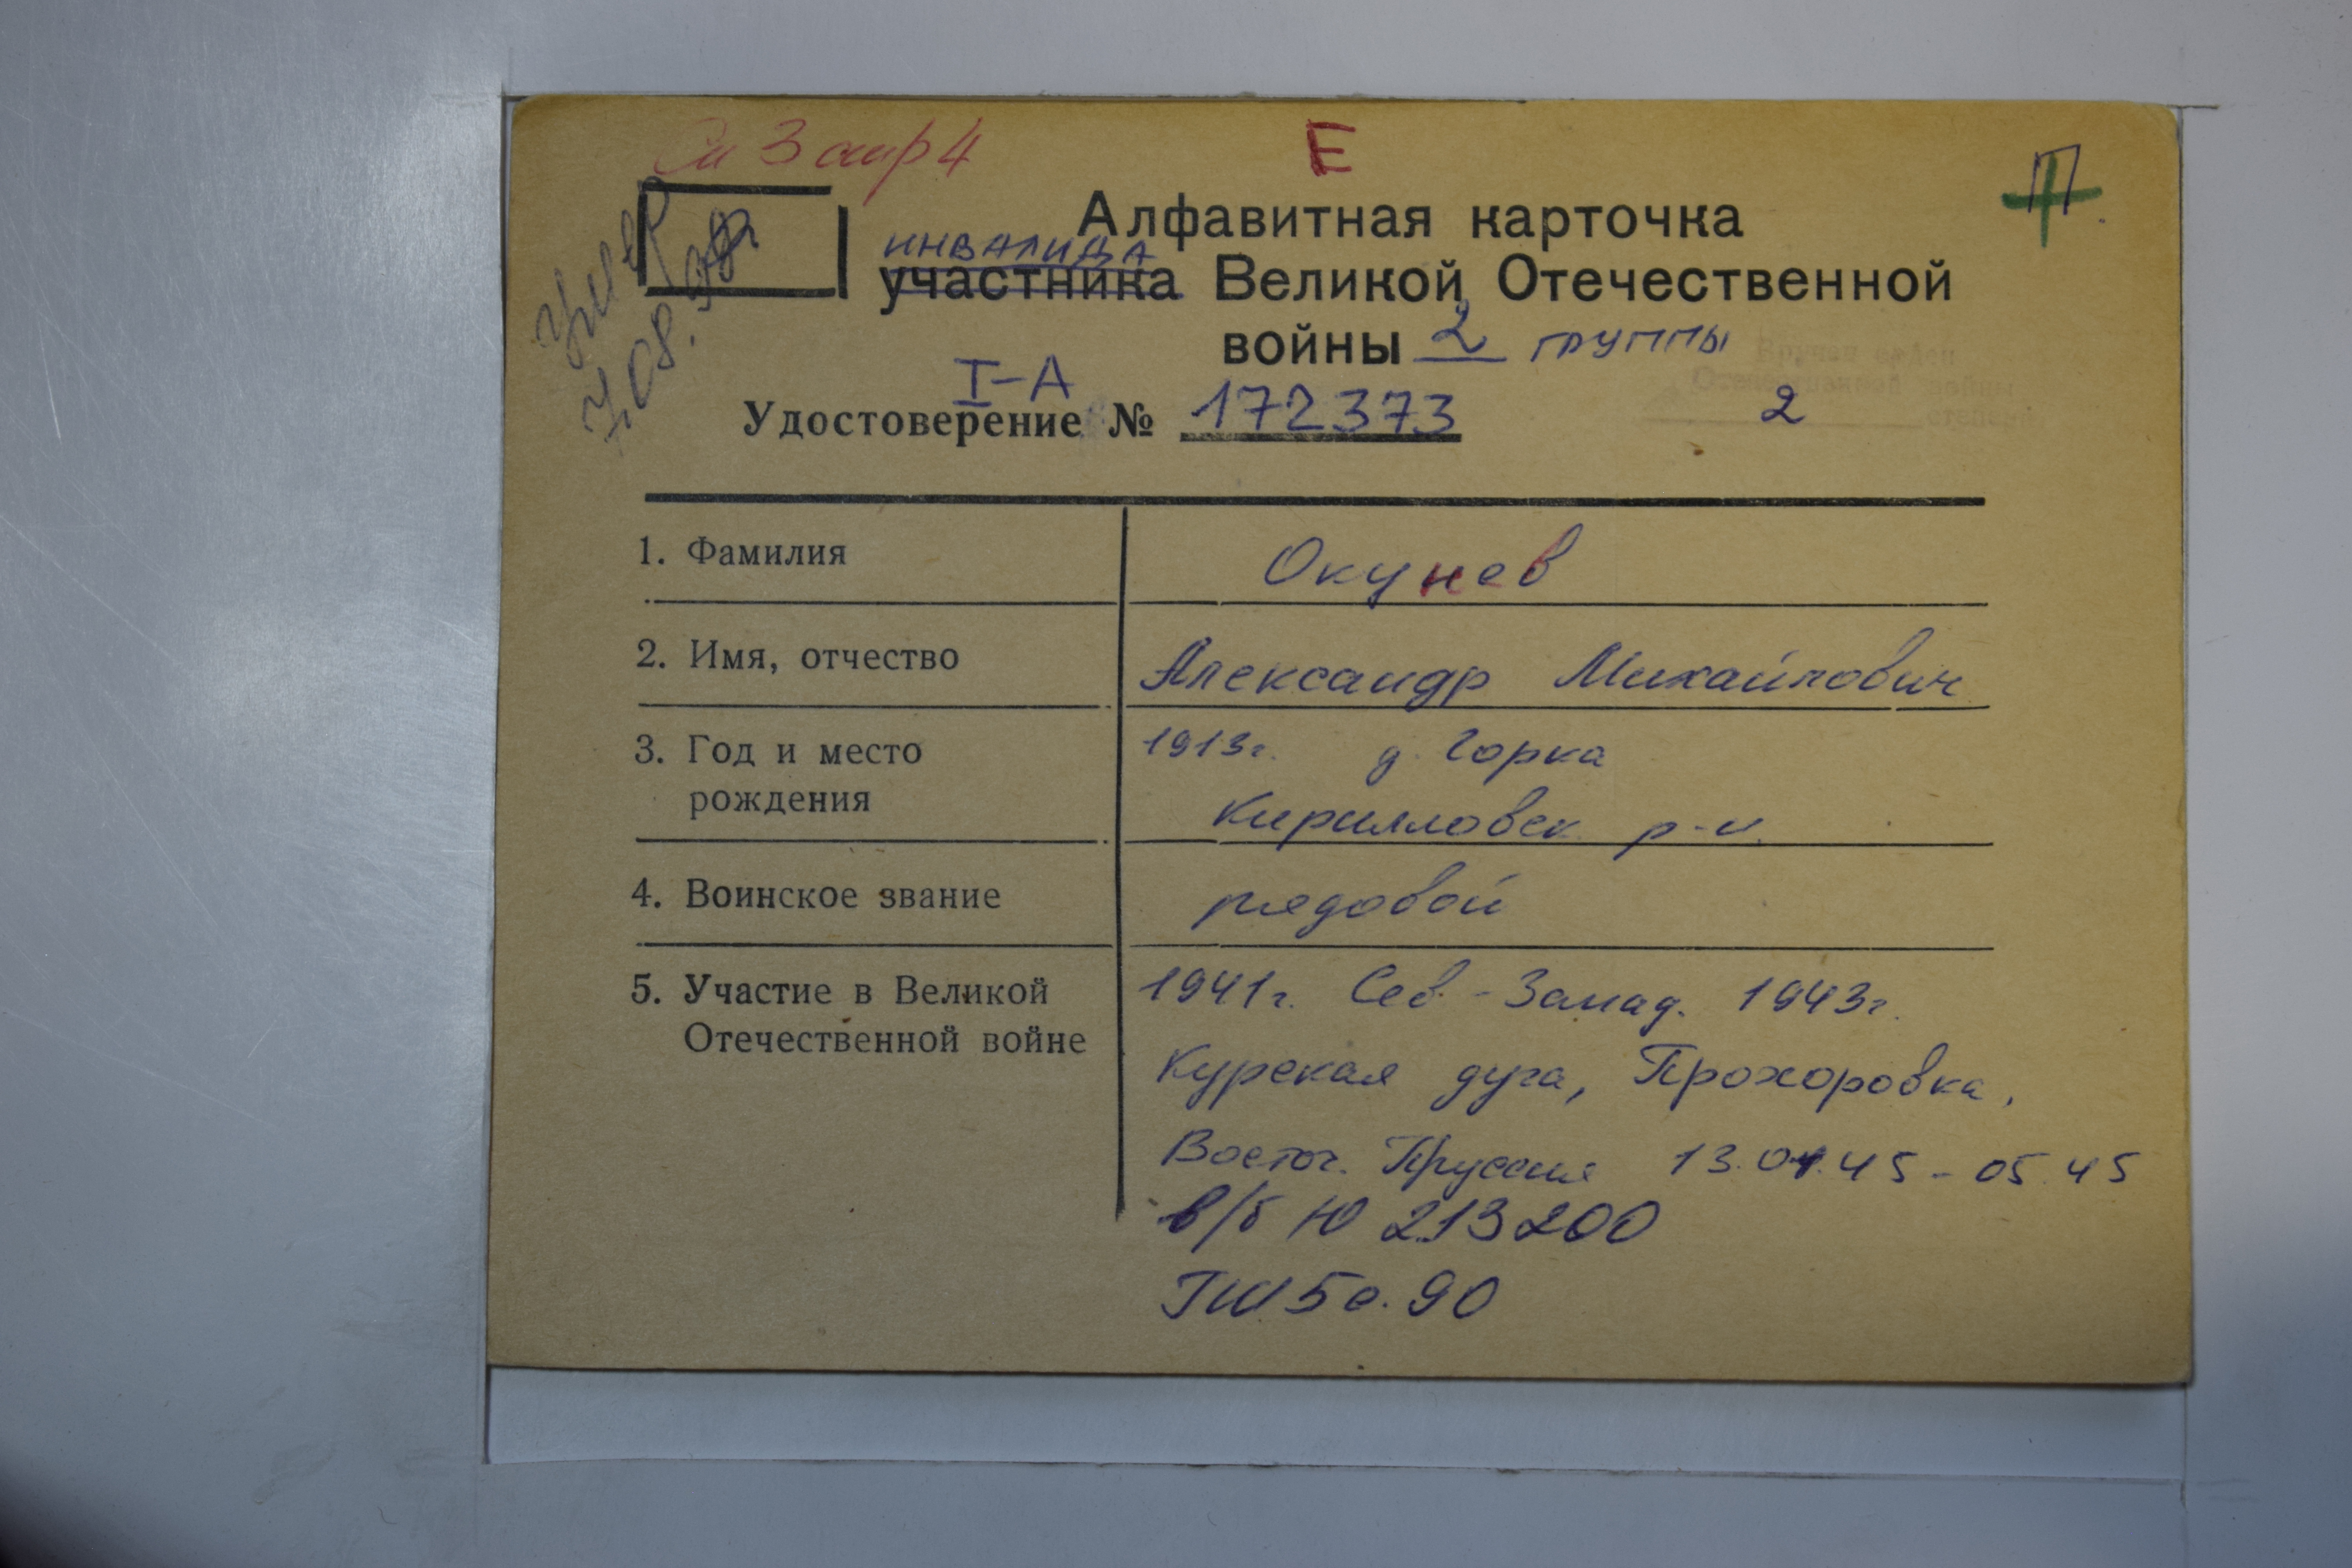 Е
П.
Алфавитная карточка
инвалида
участника Великой Отечественной
войны 2 группы
умер
7.08.
I-А
Удостоверение № 172373
Вручен орден
Отечественной войны
2 степени
1. Фамилия Окунев
2. Имя, отчество Александр Михайлович
3. Год и место 1913г. д. Горка
рождения Кирилловск р-н.
4. Воинское звание рядовой
5. Участие в Великой 1941г. Сев.-Запад. 1943г.
Отечественной войне Курская дуга, Прохоровка,
Восточ. Пруссия 13.01.45 - 05.45
в/б Ю 213200